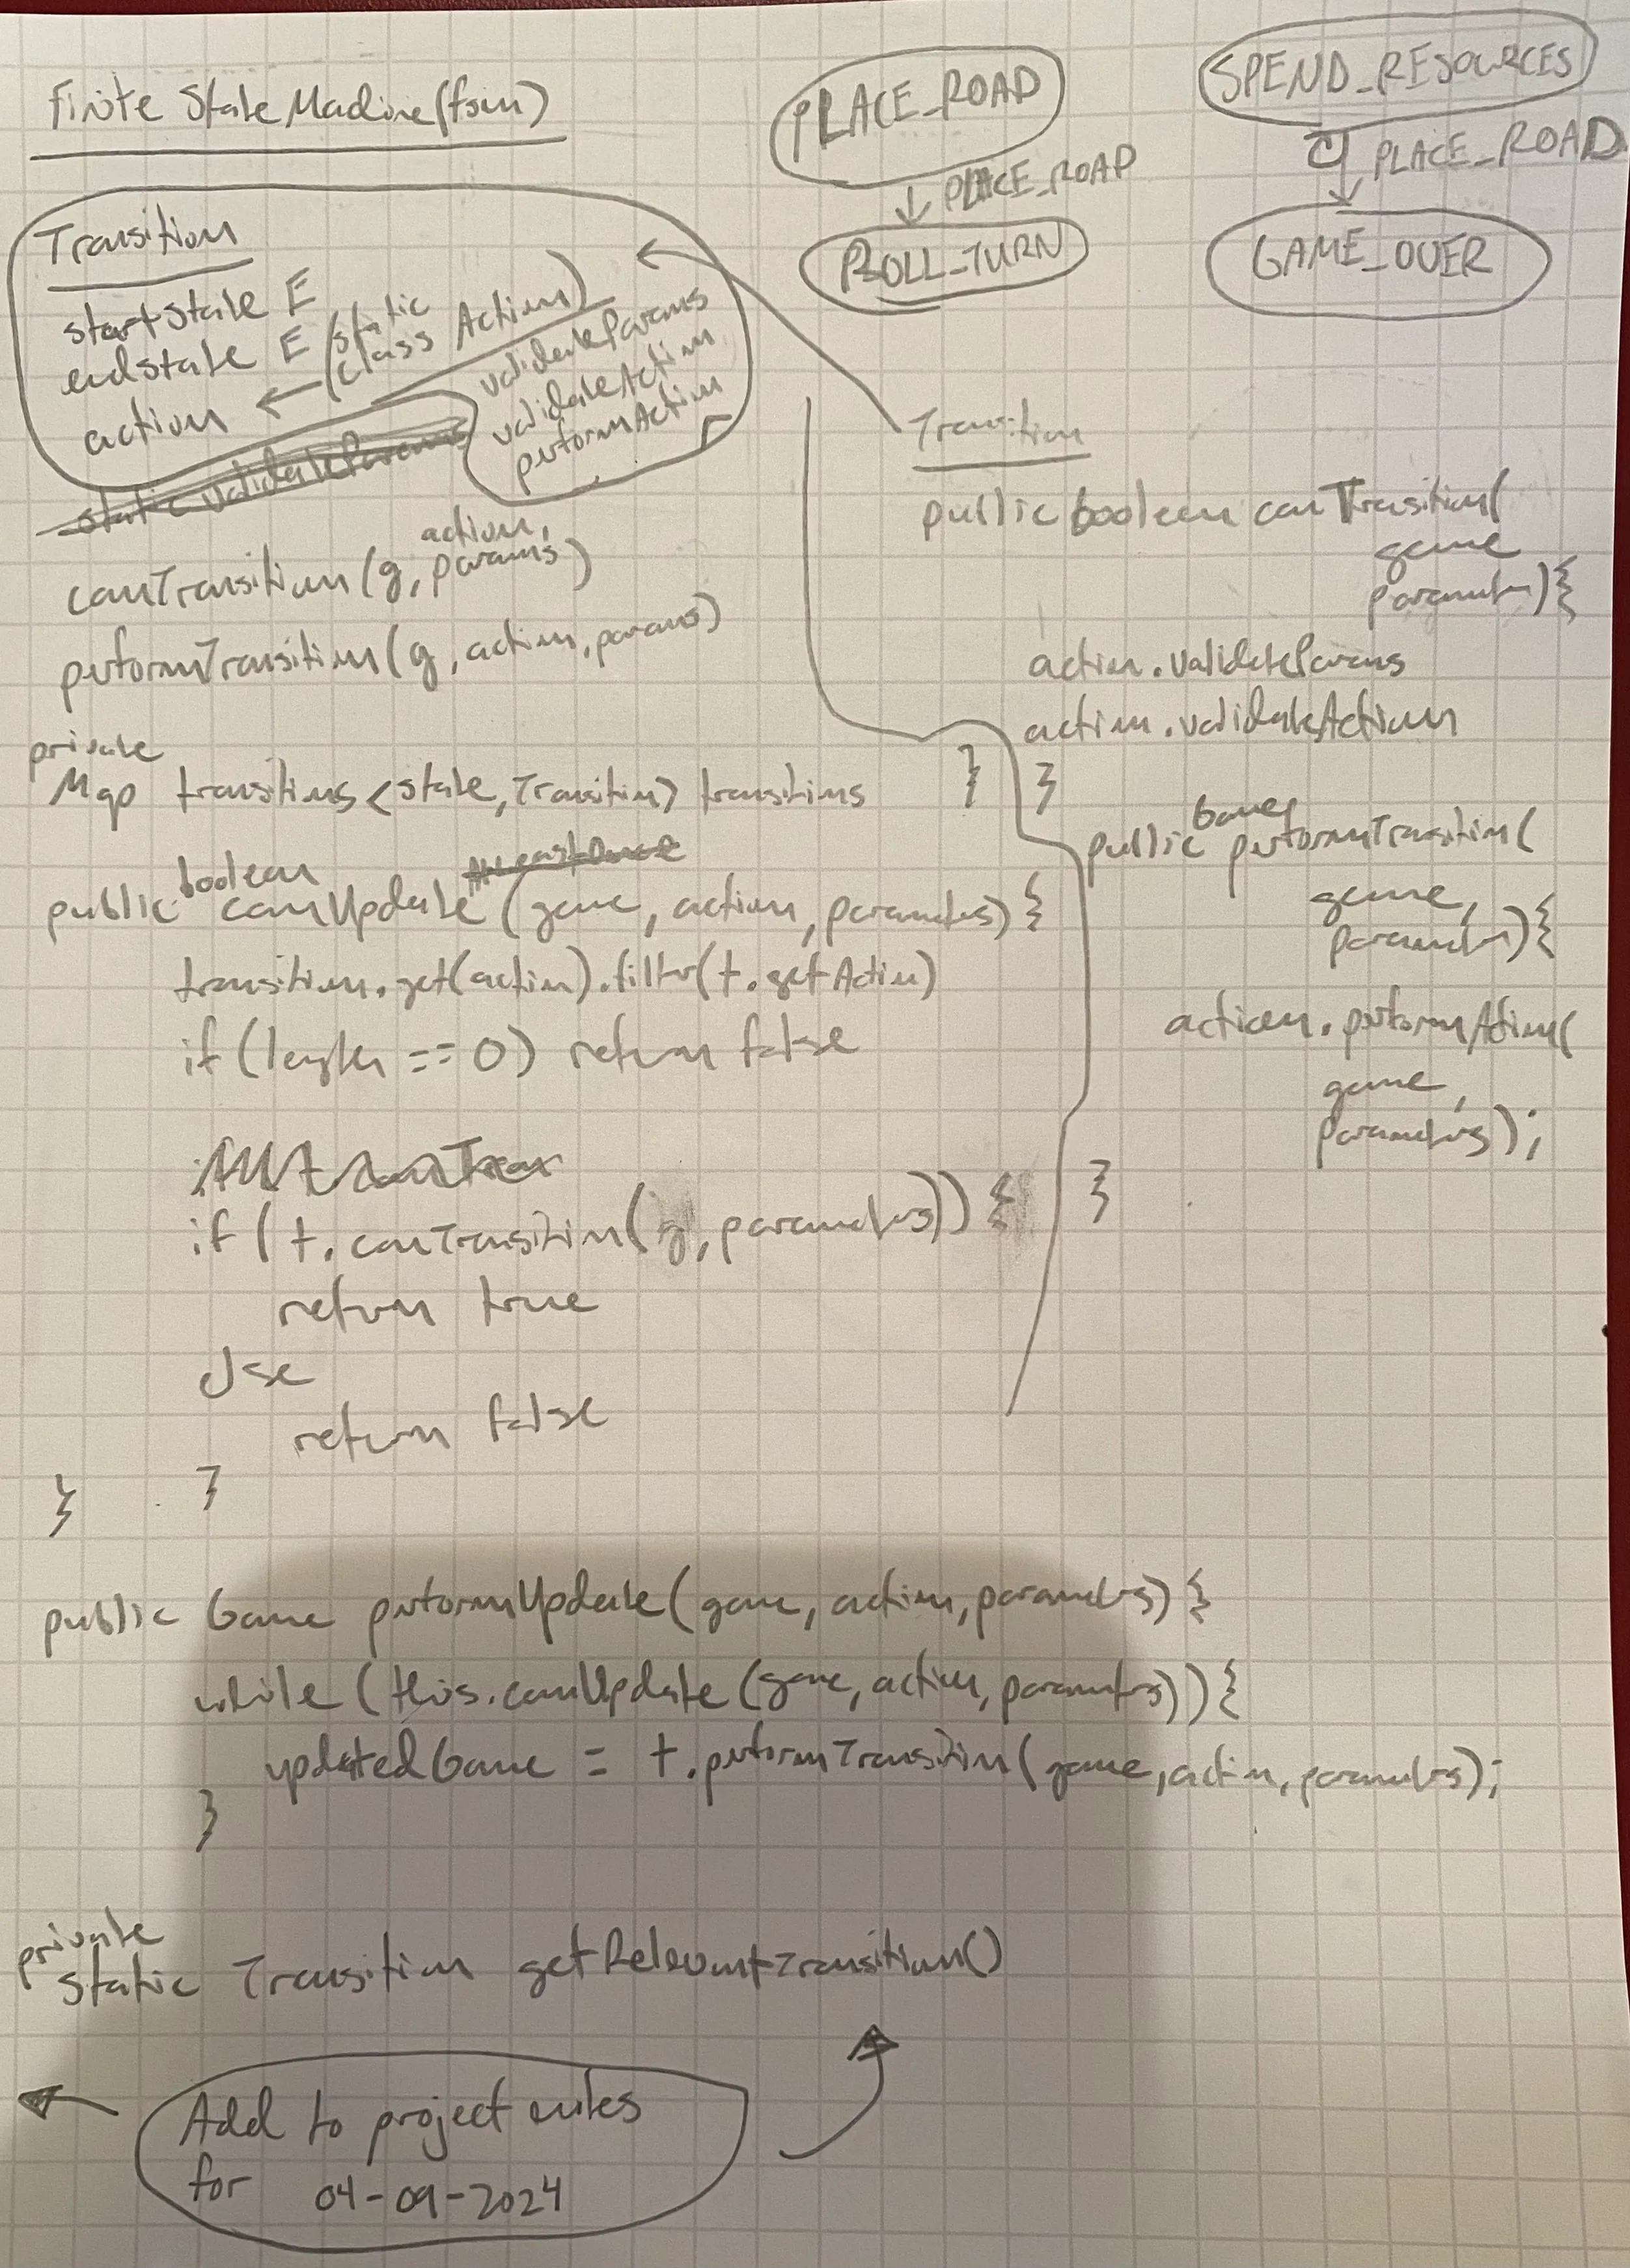 Finite State Machine (fsm)
PLACE_ROAD
PLACE_ROAD
ROLL_TURN
SPEND_RESOURCES
PLACE_ROAD
GAME_OVER
Transition
startstate E
endstate E
action ← (static class Action)
validateParams
validateAction
performAction
static validateParams
canTransition(g, action, params)
performTransition(g, action, params)
private
Map transitions <state, Transition> transitions
public boolean canUpdate (game, action, parameters) {
transition.get(action).filter(t.getAction)
if (length == 0) return false
if (t.canTransition(g, parameters)) {
return true
else
return false
}
}
public Game performUpdate(game, action, parameters) {
while (this.canUpdate(game, action, parameters)) {
updatedGame = t.performTransition(game, action, parameters);
}
}
private
static Transition getRelevantTransition()
Add to project notes
for 04-09-2024
Transition
public boolean canTransition(
game
parameters) {
action.validateParams
action.validateAction
}
public Game performTransition(
game,
parameters) {
action.performAction(
game,
parameters);
}